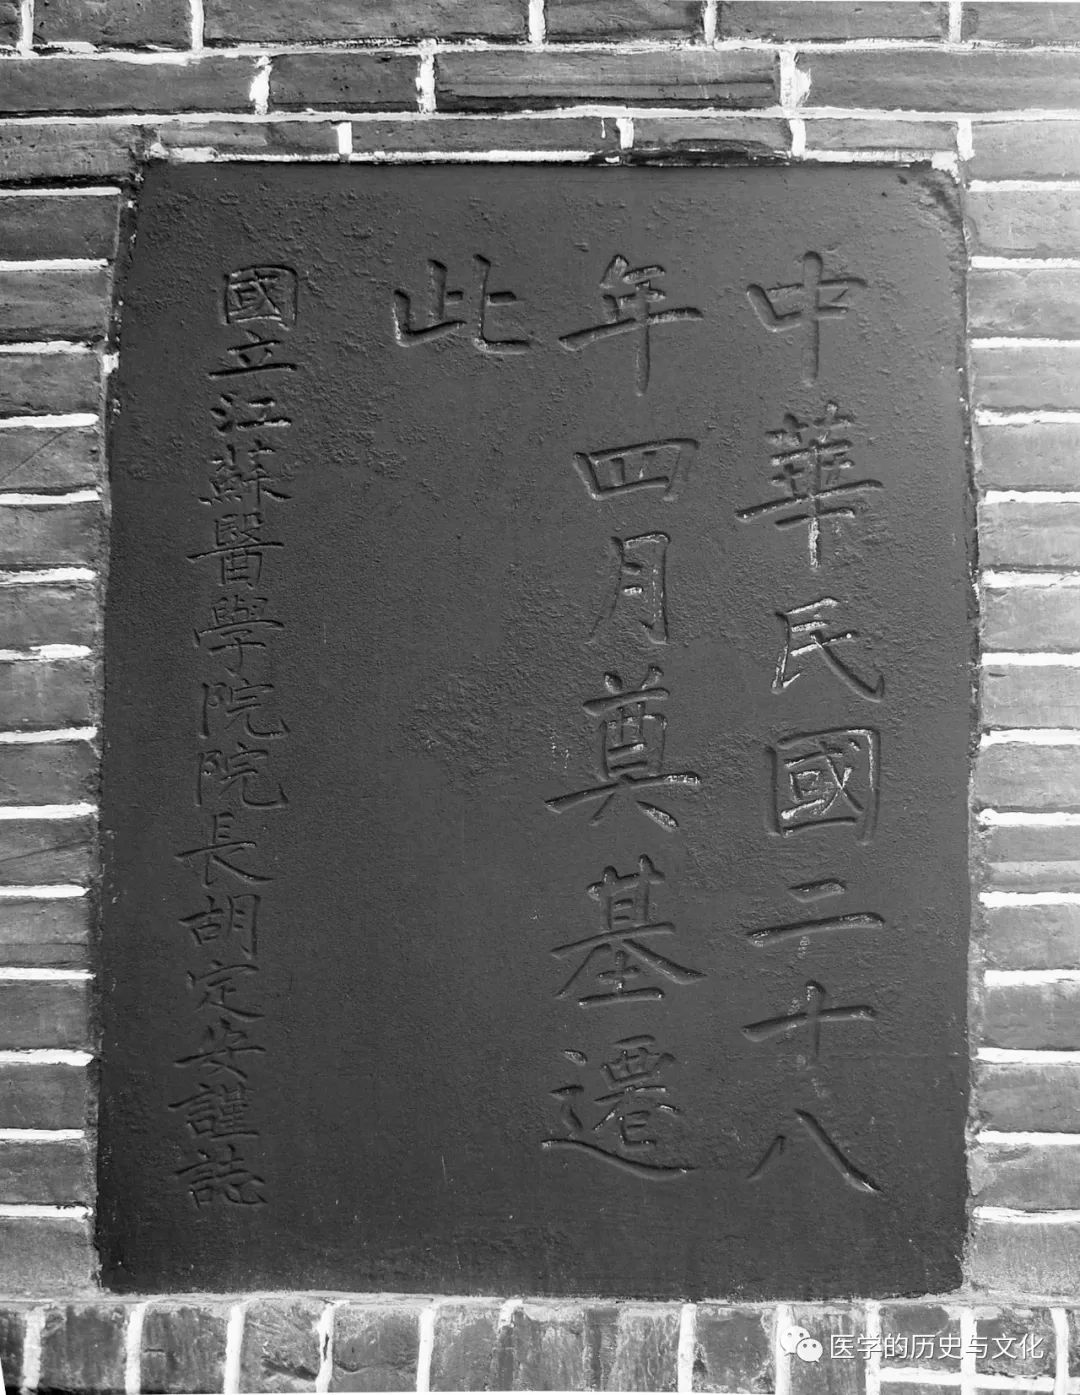 中華民國二十八
年四月奠基遷
此
國立江蘇醫學院院長胡定安謹誌
医学的历史与文化